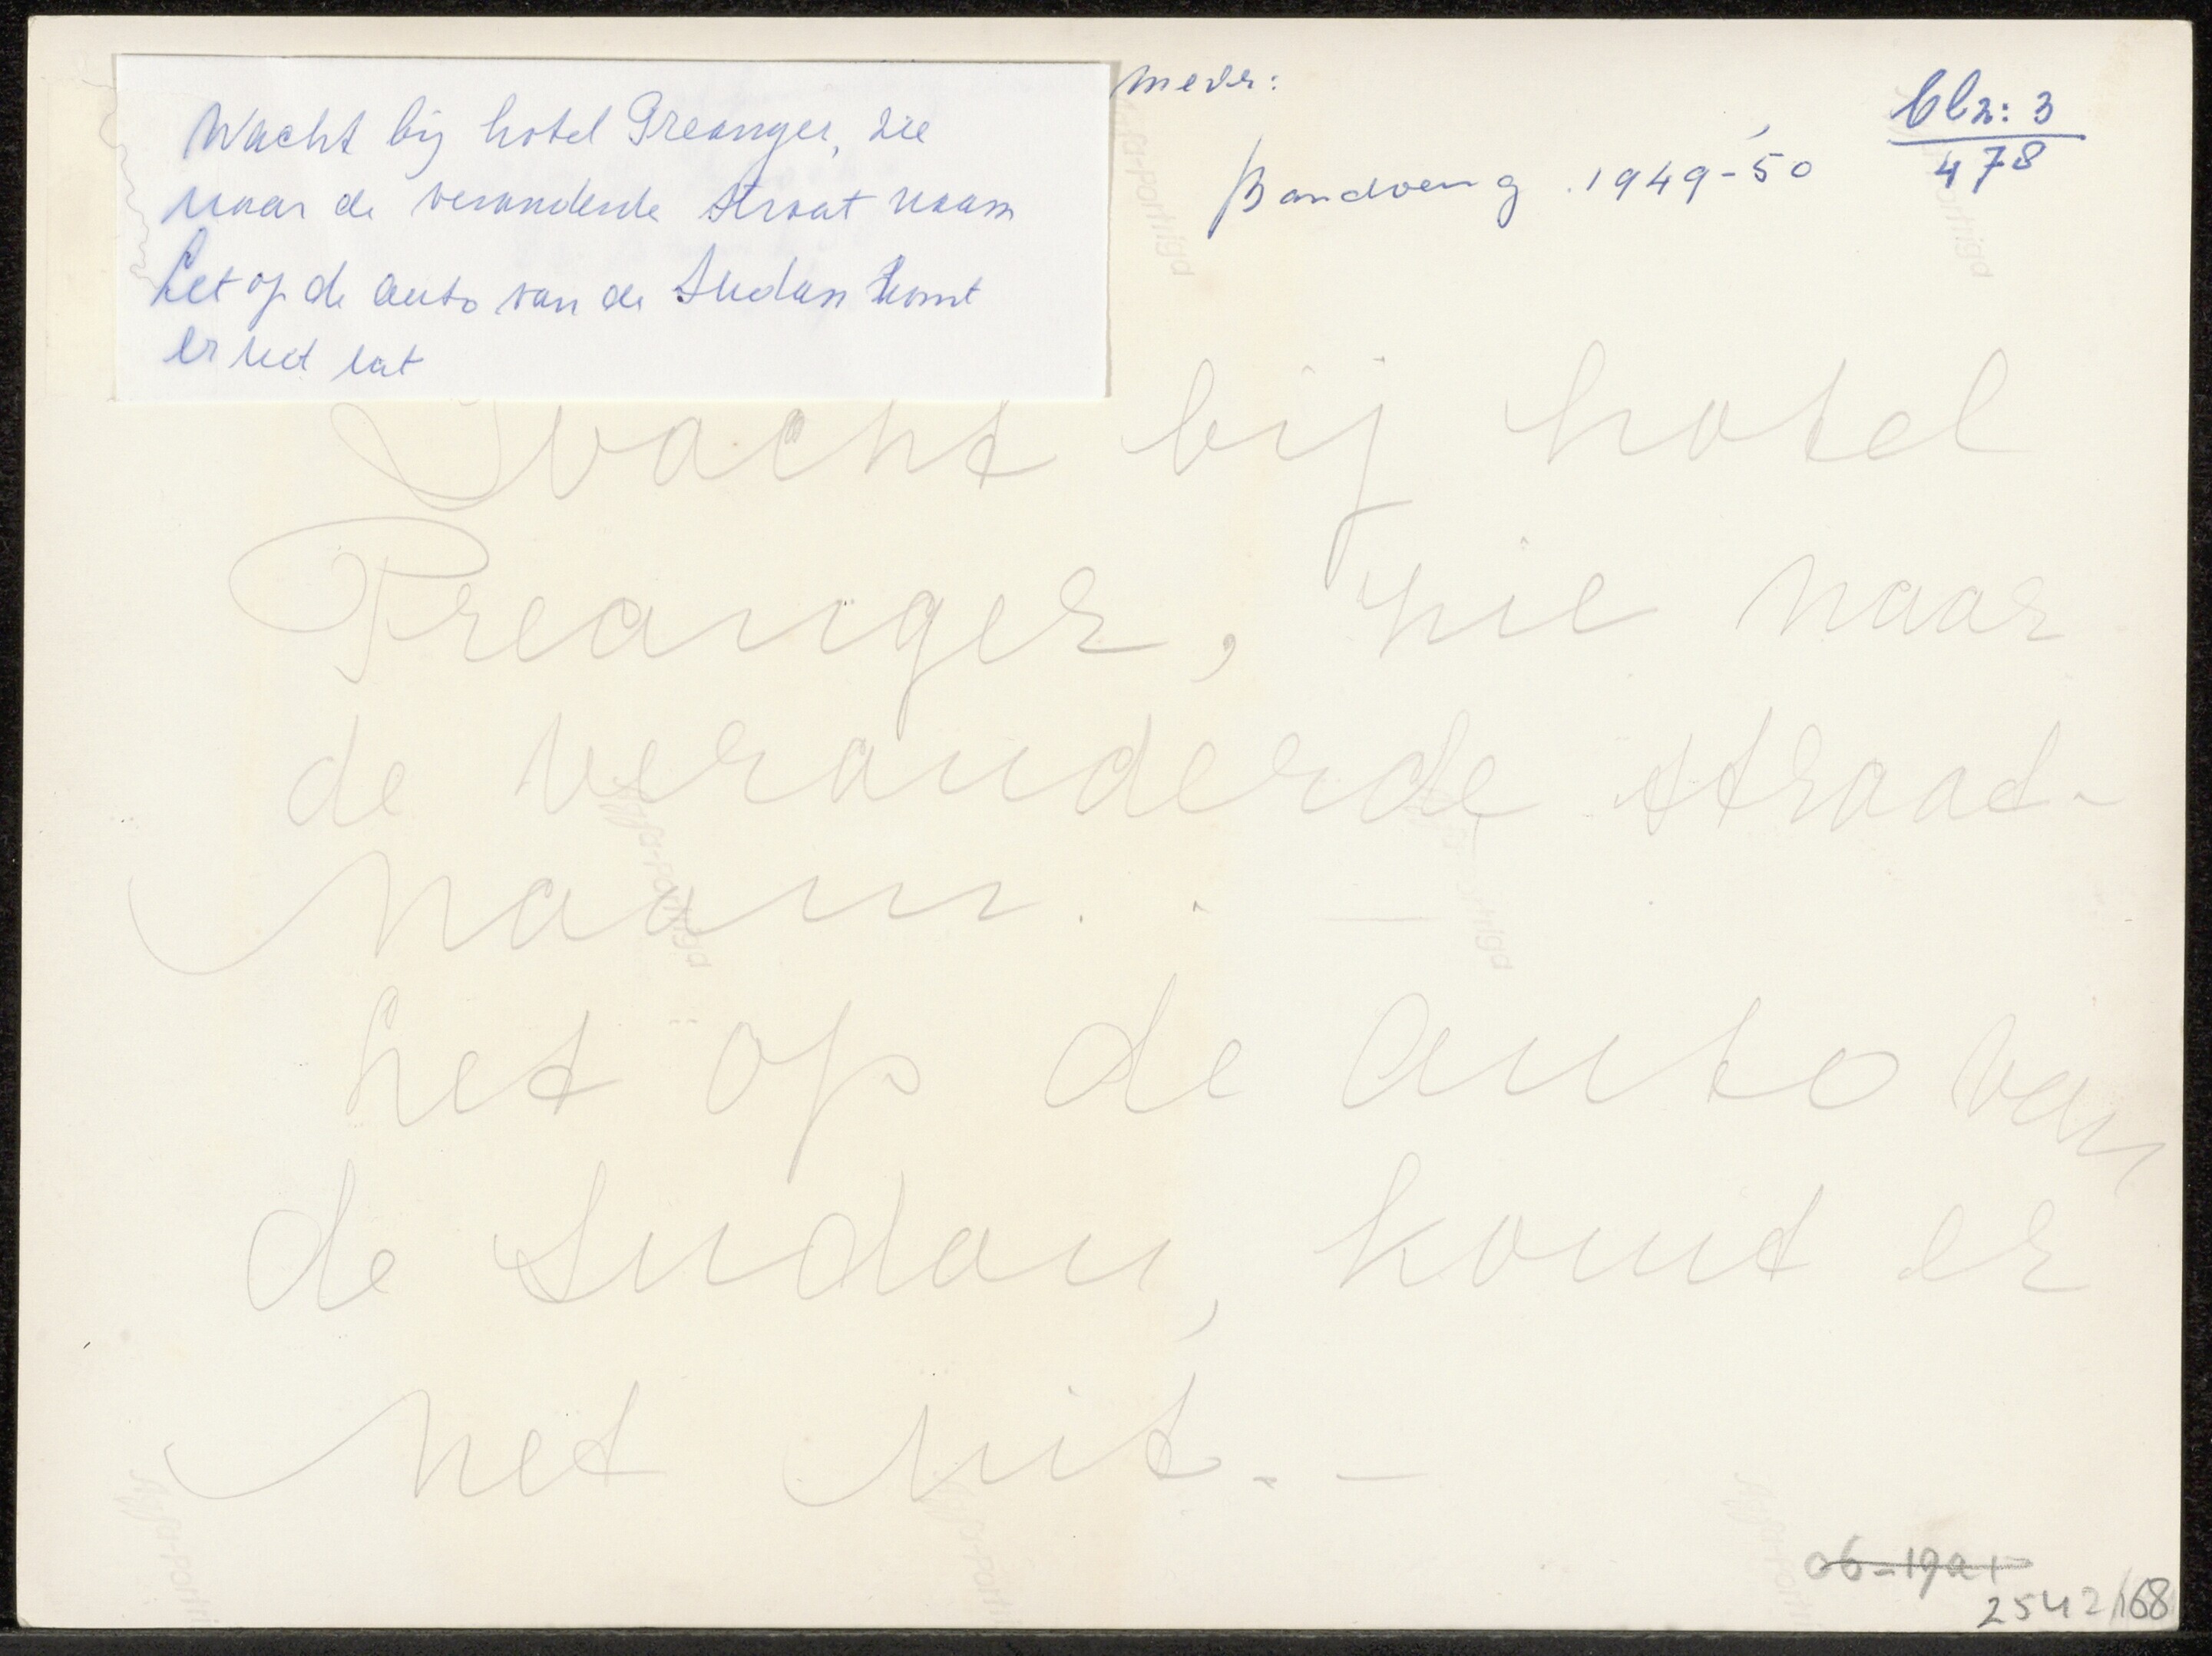 Wacht bij hotel Preanger, zie
naar de veranderde straat naam
Let op de auto van de Sudan komt
er net uit
Bandoeng 1949-'50
blz: 3
478
Wacht bij hotel
Preanger, zie naar
de veranderde straat-
naam. —
Let op de auto van
de Sudan, komt er
net uit. —
2542/168